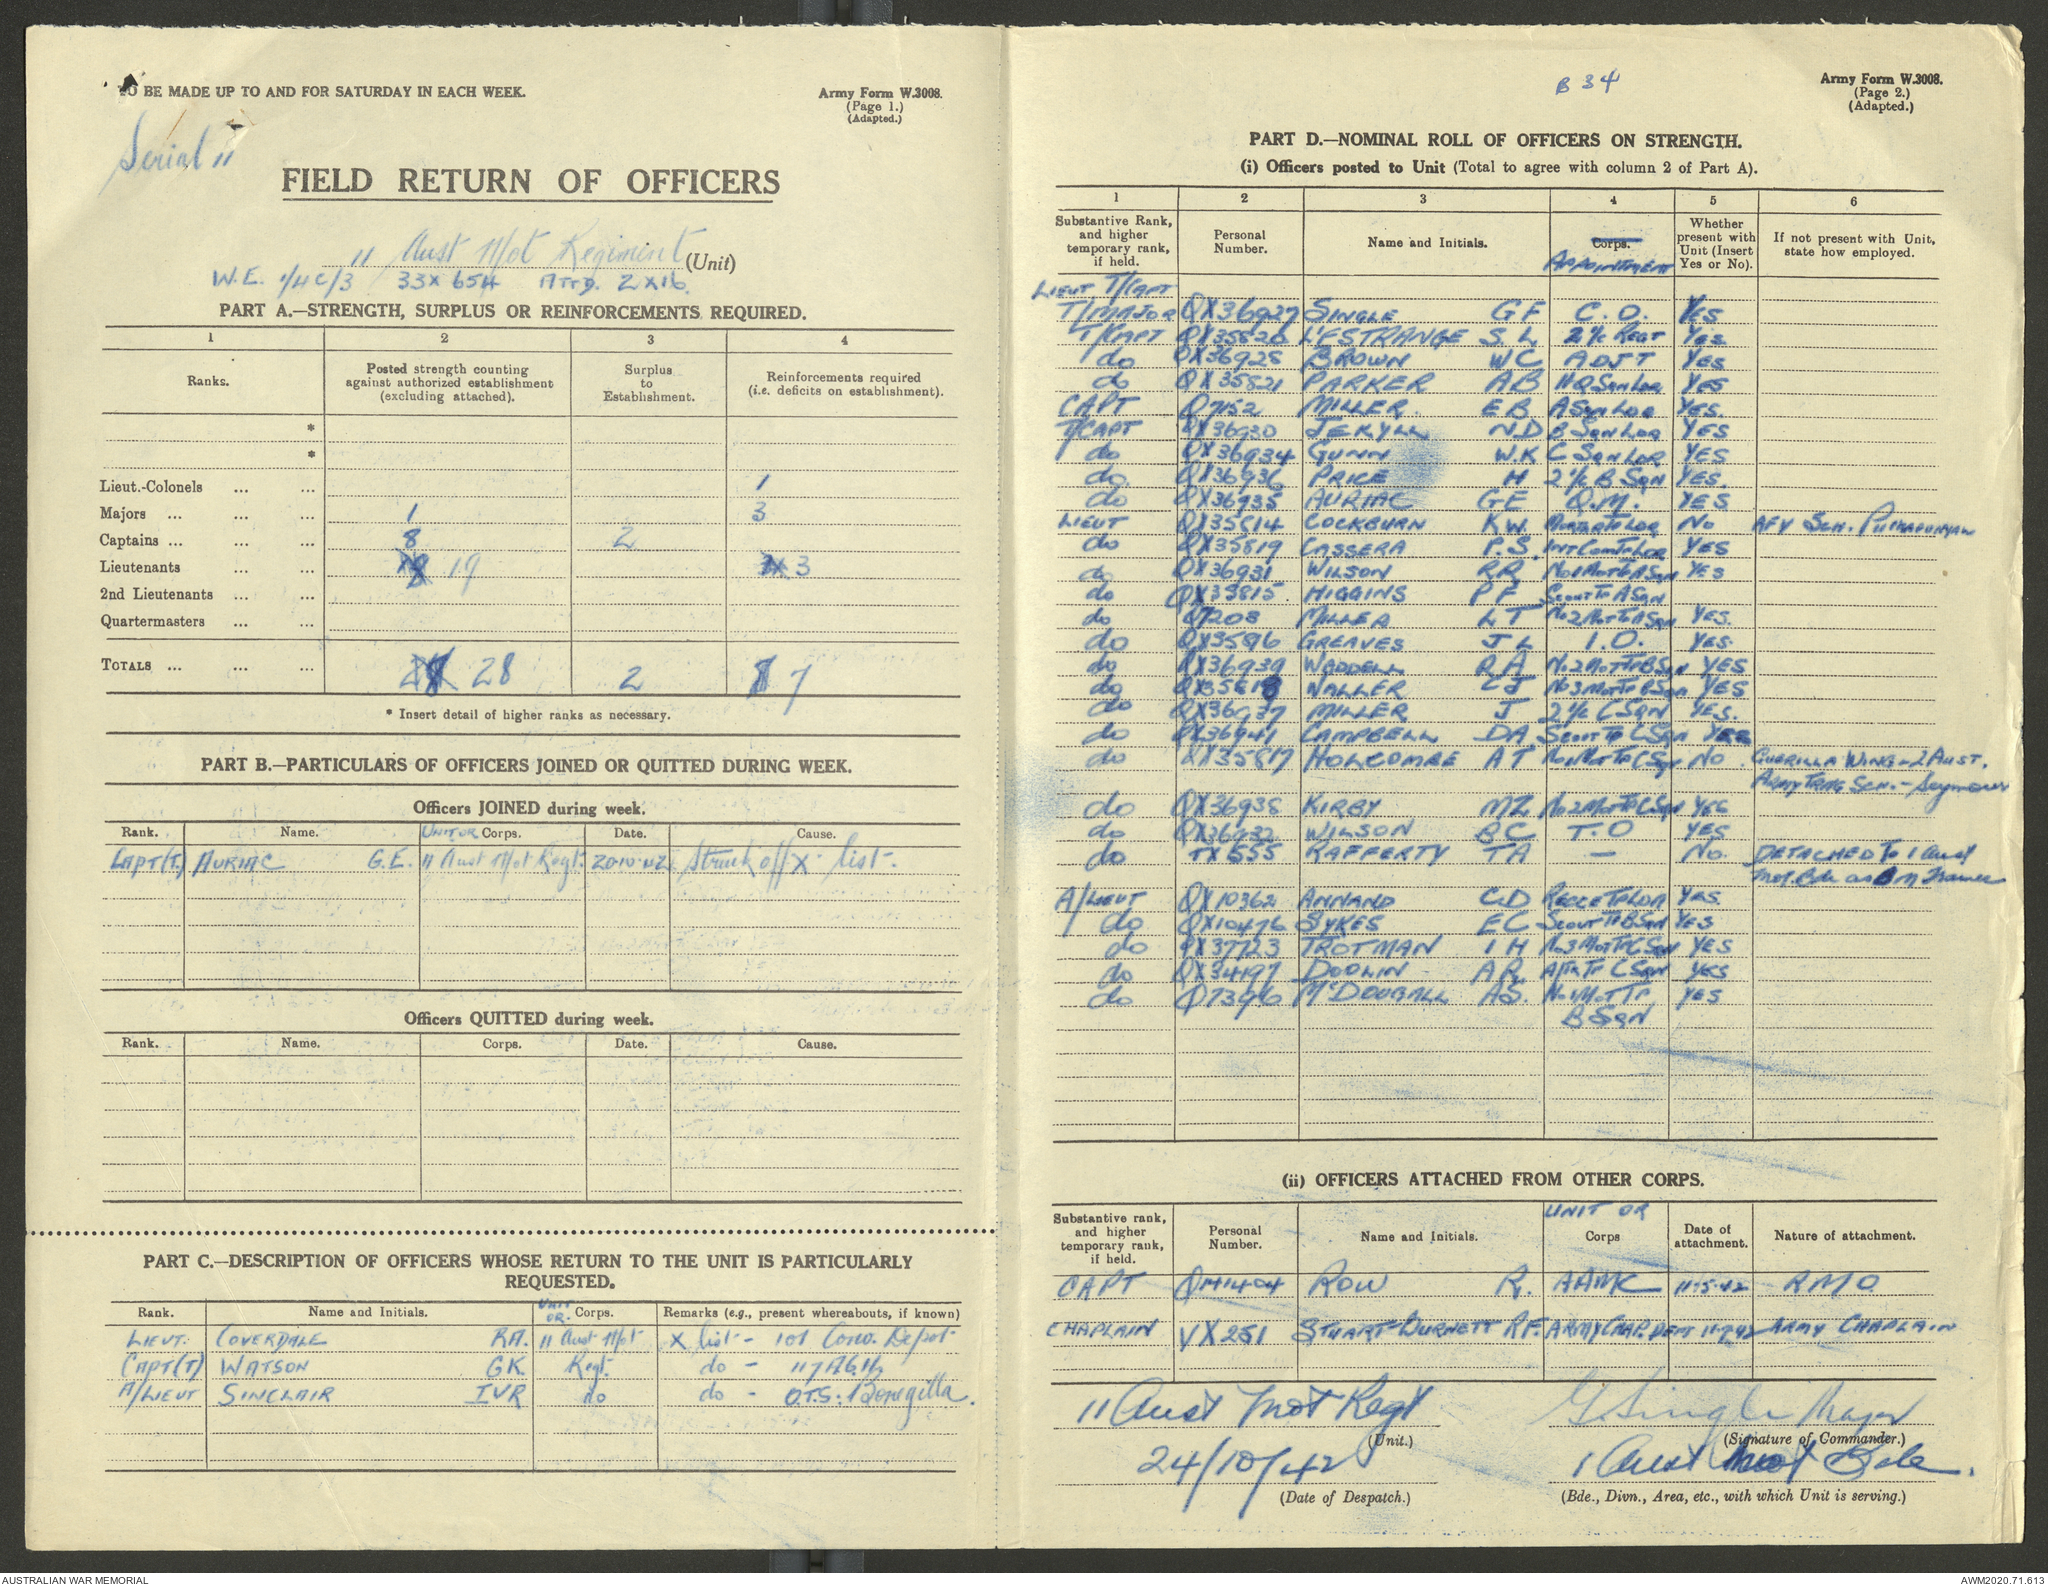 TO BE MADE UP TO AND FOR SATURDAY IN EACH WEEK.
Army Form W.3008.
(Page 1.)
(Adapted.)
Serial 11
FIELD RETURN OF OFFICERS
11 Aust Mot Regiment (Unit)
W.E. 1/4C/3 33 x 654 ATTD. 2 x 16.
PART A.—STRENGTH, SURPLUS OR REINFORCEMENTS REQUIRED.
1 2 3 4
Ranks. Posted strength counting against authorized establishment (excluding attached). Surplus to Establishment. Reinforcements required (i.e. deficits on establishment).
*
*
Lieut.-Colonels ... ... 1
Majors ... ... ... 1 3
Captains ... ... ... 8 2
Lieutenants ... ... 19 3
2nd Lieutenants ... ...
Quartermasters ... ...
TOTALS ... ... ... 28 2 7
* Insert detail of higher ranks as necessary.
PART B.—PARTICULARS OF OFFICERS JOINED OR QUITTED DURING WEEK.
Officers JOINED during week.
Rank. Name. UNIT OR Corps. Date. Cause.
CAPT(T.) AURIAC G.E. 11 Aust Mot Regt. 20.10.42 Struck off X list.
Officers QUITTED during week.
Rank. Name. Corps. Date. Cause.
PART C.—DESCRIPTION OF OFFICERS WHOSE RETURN TO THE UNIT IS PARTICULARLY
REQUESTED.
Rank. Name and Initials. UNIT OR Corps. Remarks (e.g., present whereabouts, if known)
LIEUT. COVERDALE RA. 11 Aust Mot X list - 101 Conv. Depot
CAPT(T) WATSON GK. Regt. do - 117 A.G.H.
A/LIEUT SINCLAIR IVR do do - O.T.S. Bonegilla.
B 34
Army Form W.3008.
(Page 2.)
(Adapted.)
PART D.—NOMINAL ROLL OF OFFICERS ON STRENGTH.
(i) Officers posted to Unit (Total to agree with column 2 of Part A).
1 2 3 4 5 6
Substantive Rank, and higher temporary rank, if held. Personal Number. Name and Initials. Corps. APPOINTMENT Whether present with Unit (Insert Yes or No). If not present with Unit, state how employed.
LIEUT T/CAPT
T/MAJOR QX36927 SINGLE GF C.O. YES
T/CAPT QX35826 L'ESTRANGE S.L 2 i/c REGT YES
do QX36928 BROWN WC ADJT YES
do QX35821 PARKER AB HQ SQN LDR YES
CAPT Q7152 MILLER. EB A SQN LDR YES.
T/CAPT QX36930 JEKYLL ND B SQN LDR YES
do QX36934 GUNN W.K C SQN LDR YES
do QX36936 PRICE H 2 i/c B SQN YES.
do QX36935 AURIAC GE Q.M. YES
LIEUT QX35814 COCKBURN K.W. MORTAR TP LDR NO AFV SCH. PUCKAPUNYAL
do QX35819 CASSERA P.S. INT COM TP LDR YES
do QX36931 WILSON RR No1 MOT TP A SQN YES
do QX35815 HIGGINS PF SCOUT TP A SQN
do Q7208 MILLER LT No2 MOT TP A SQN YES.
do QX35896 GREAVES JL I.O. YES.
do QX36939 WADDELL RA No2 MOT TP B SQN YES
do QX35818 WALLER CJ No3 MOT TP B SQN YES
do QX36937 MILLER J 2 i/c C SQN YES.
do QX36941 CAMPBELL DA SCOUT TP C SQN YES
do QX35817 HOLCOMBE AT No1 MOT TP C SQN NO GUERILLA WING - 2 AUST.
ARMY TRNG SCH. - Seymour
do QX36938 KIRBY MZ No2 MOT TP C SQN YES
do QX36932 WILSON BC T.O YES
do TX555 RAFFERTY TA — NO. DETACHED TO 1 Aust
Mot. Bde as BM Trainee
A/LIEUT QX10362 ANNAND CD RECCE TP LDR YES
do QX10476 SYKES EC SCOUT TP B SQN YES
do QX37723 TROTMAN IH No3 MOT TP C SQN YES
do QX34197 DOOLIN AR A/TK TP C SQN YES
do Q7396 McDOUGALL AS. No1 MOT TP YES
B SQN
(ii) OFFICERS ATTACHED FROM OTHER CORPS.
Substantive rank, and higher temporary rank, if held. Personal Number. Name and Initials. UNIT OR Corps Date of attachment. Nature of attachment.
CAPT QM1404 ROW R. AAMC 11.5.42 RMO
CHAPLAIN VX251 STUART BURNETT R.F. ARMY CHAP. DEPT 11.2.42 ARMY CHAPLAIN
11 Aust Mot Regt G. Single Major
(Unit.) (Signature of Commander.)
24/10/42 1 Aust Mot Bde.
(Date of Despatch.) (Bde., Divn., Area, etc., with which Unit is serving.)
AUSTRALIAN WAR MEMORIAL
AWM2020.71.613